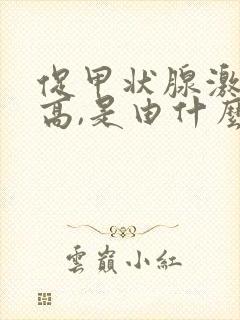 促甲状腺激
高,是由什麼
雲巔小紅